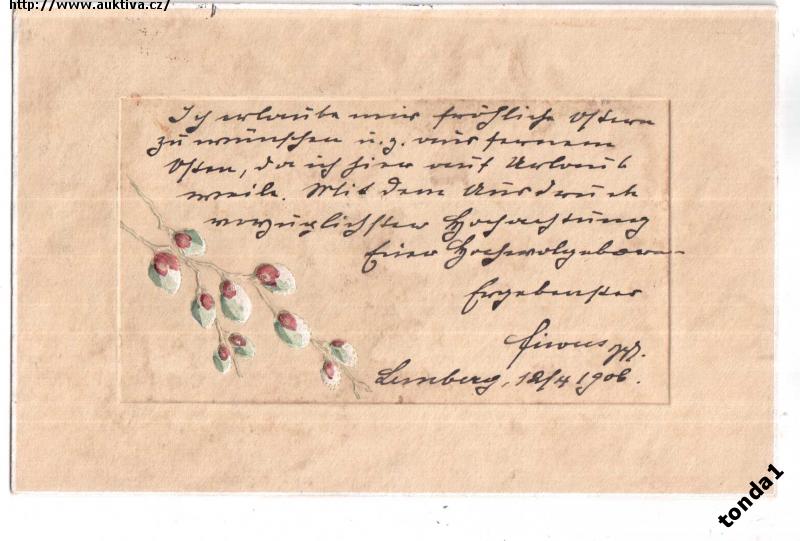 http://www.auktiva.cz/
Ich erlaube mir fröhliche Ostern
zu wünschen u. z. aus fernem
Osten, da ich hier auf Urlaub
weile. Mit dem Ausdruck
vorzüglichster Hochachtung
Euer Hochwolgeboren
Ergebenster
Lemberg, 12/4 1906.
tonda1